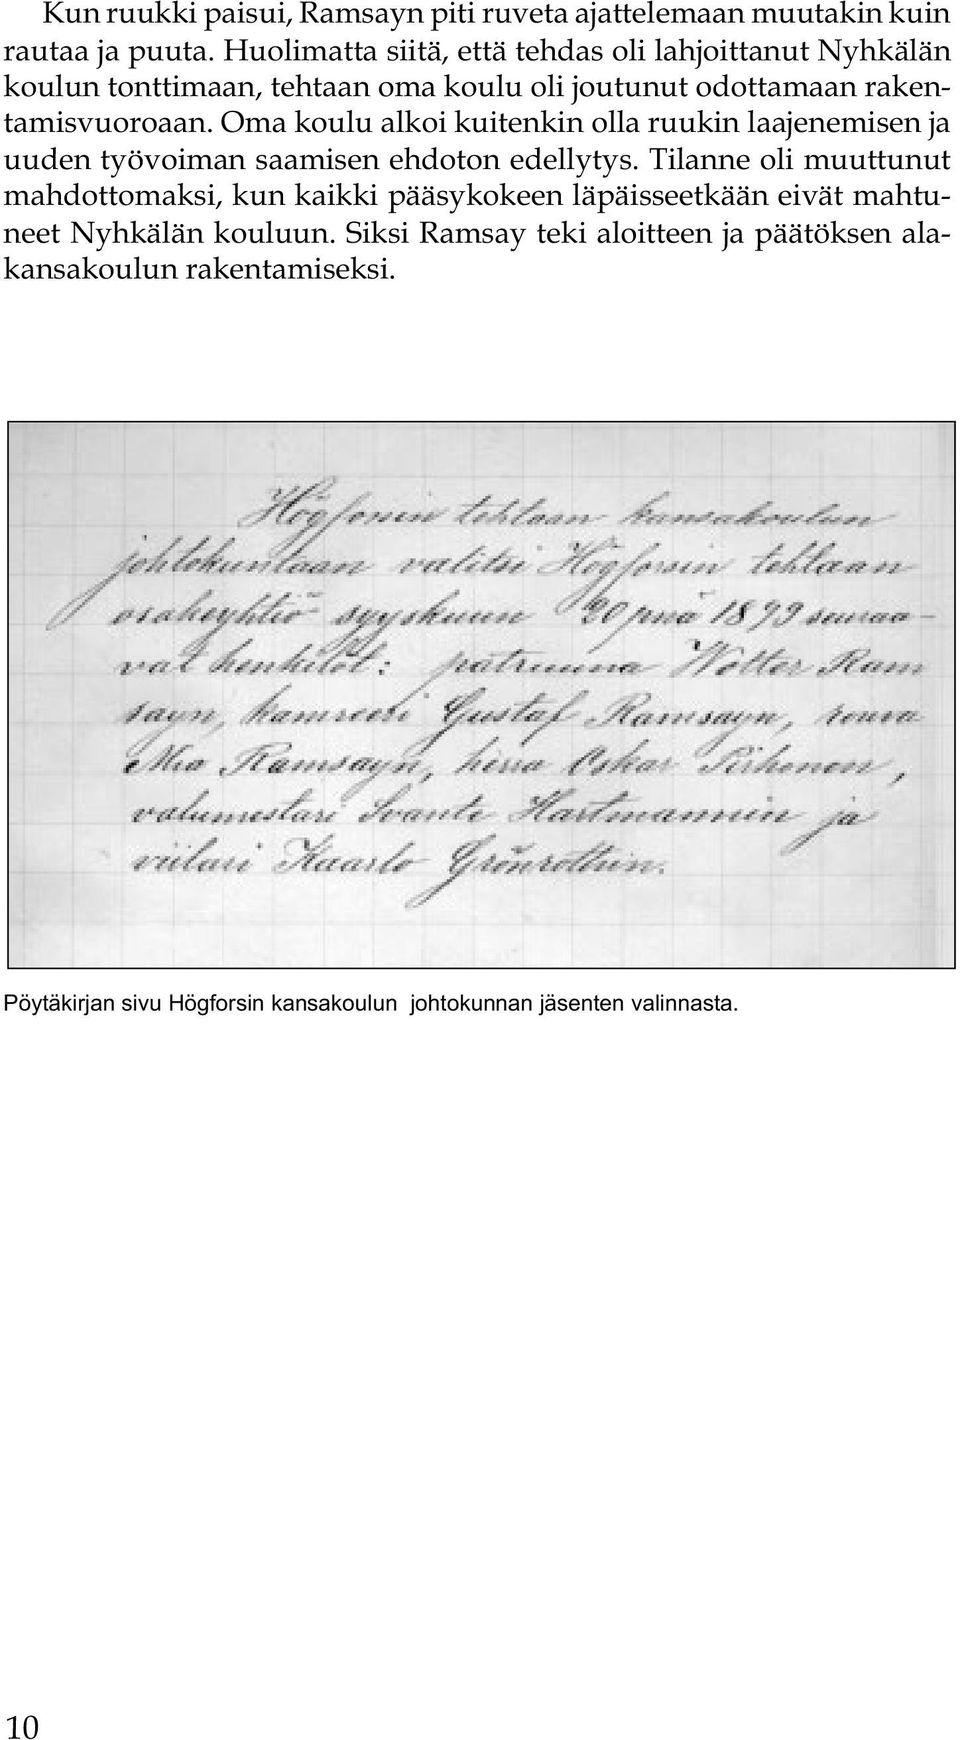 Kun ruukki paisui, Ramsayn piti ruveta ajattelemaan muutakin kuin
rautaa ja puuta. Huolimatta siitä, että tehdas oli lahjoittanut Nyhkälän
koulun tonttimaan, tehtaan oma koulu oli joutunut odottamaan raken-
tamisvuoroaan. Oma koulu alkoi kuitenkin olla ruukin laajenemisen ja
uuden työvoiman saamisen ehdoton edellytys. Tilanne oli muuttunut
mahdottomaksi, kun kaikki pääsykokeen läpäisseetkään eivät mahtu-
neet Nyhkälän kouluun. Siksi Ramsay teki aloitteen ja päätöksen ala-
kansakoulun rakentamiseksi.
Högforsin tehtaan kansakoulun
johtokuntaan valitsi Högforsin tehtaan
osakeyhtiö syyskuun 20 pnä 1899 seuraa-
vat henkilöt: patruuna Wolter Ram
sayn, kamreeri Gustaf Ramsayn, rouva
Mia Ramsayn, herra Oskar
valumestari Svante Hartmannin ja
viilari Kaarlo Grönrottin.
Pöytäkirjan sivu Högforsin kansakoulun johtokunnan jäsenten valinnasta.
10